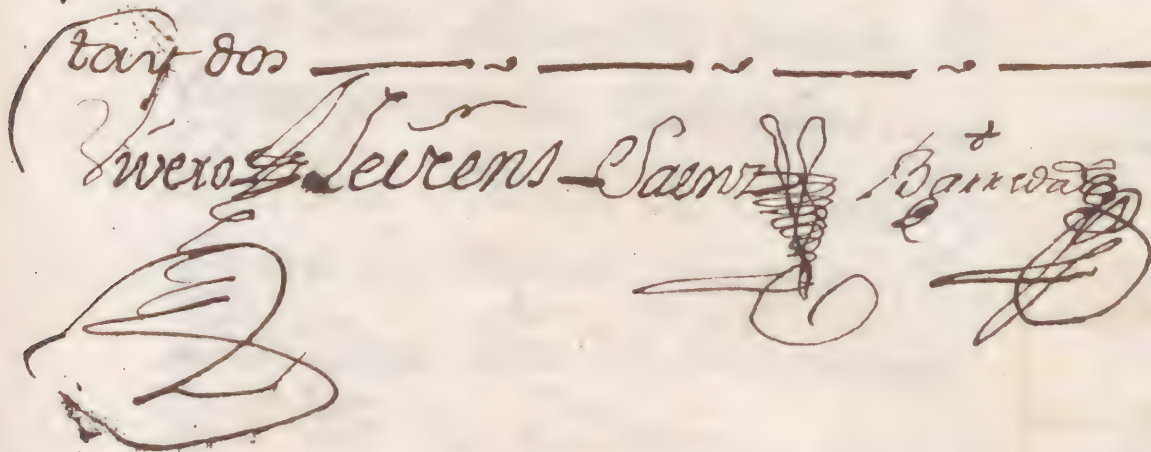 tay dos
Vivero Leirens Saenz Barreda